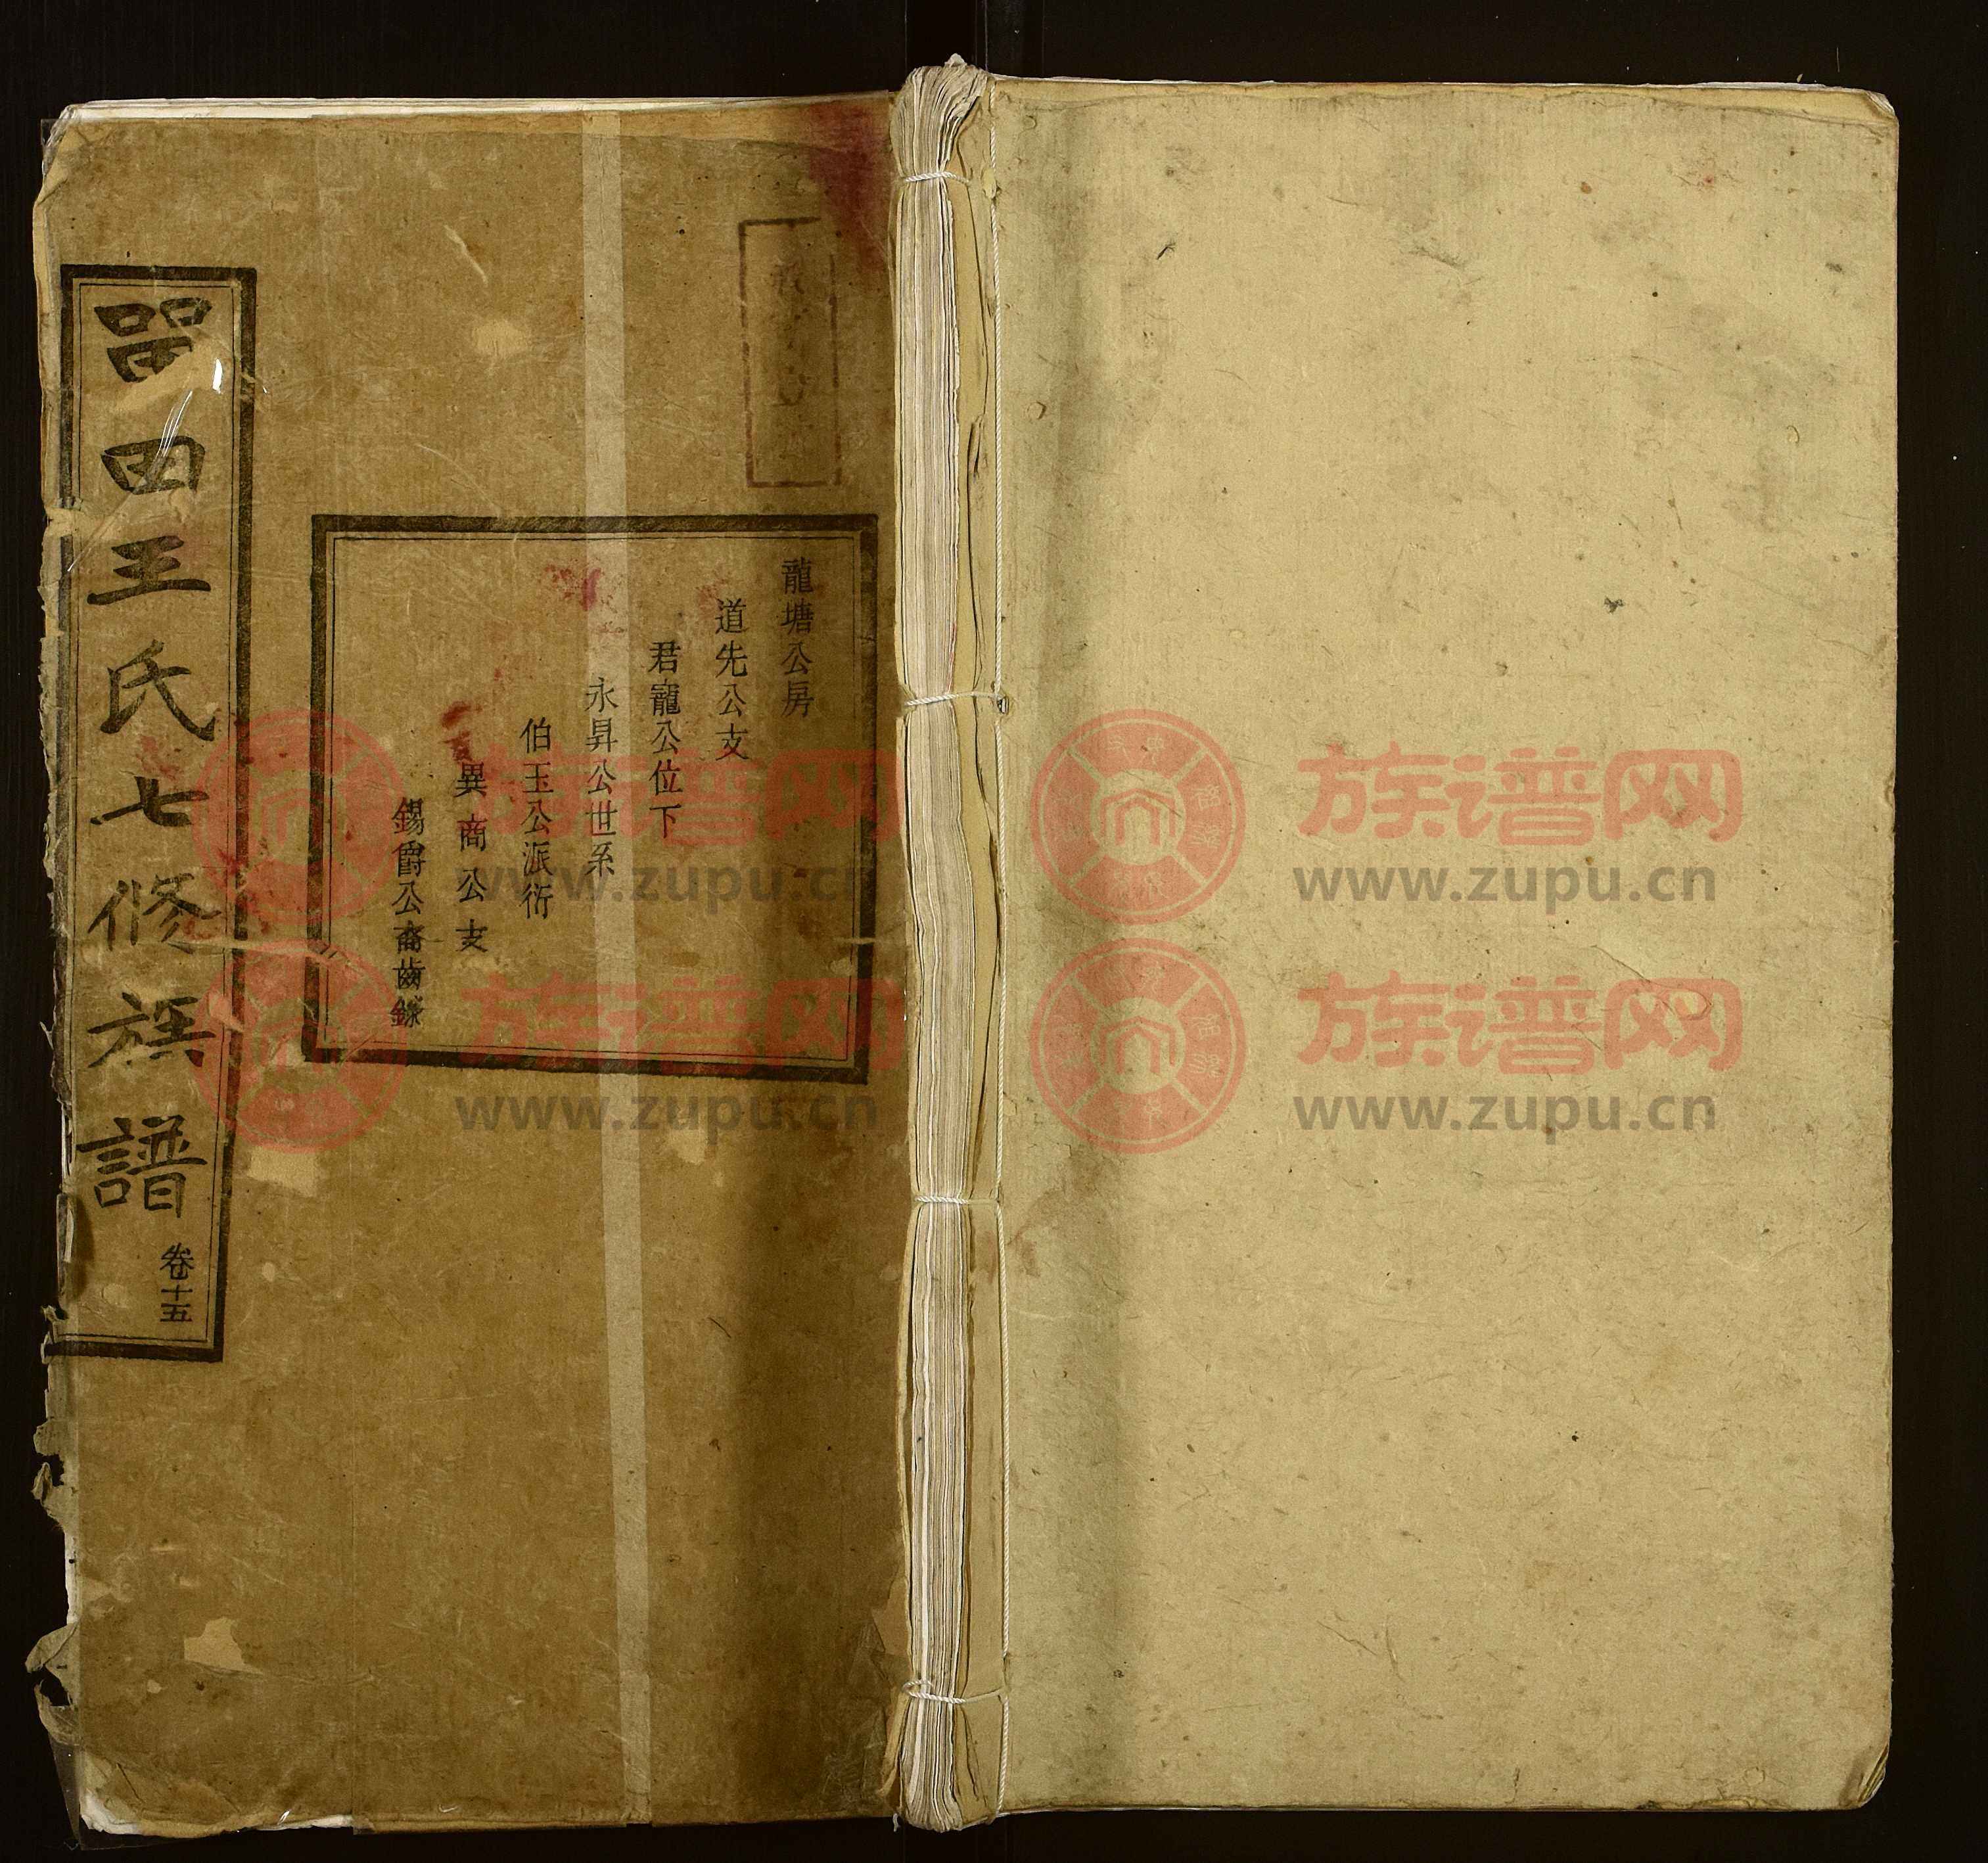 龍塘公房
道先公支
君寵公位下
永昇公世系
伯玉公派衍
異商公支
錫爵公裔齒錄
四王氏七修族譜
卷十五
族谱网
www.zupu.cn
族谱网
www.zupu.cn
族谱网
www.zupu.cn
族谱网
www.zupu.cn